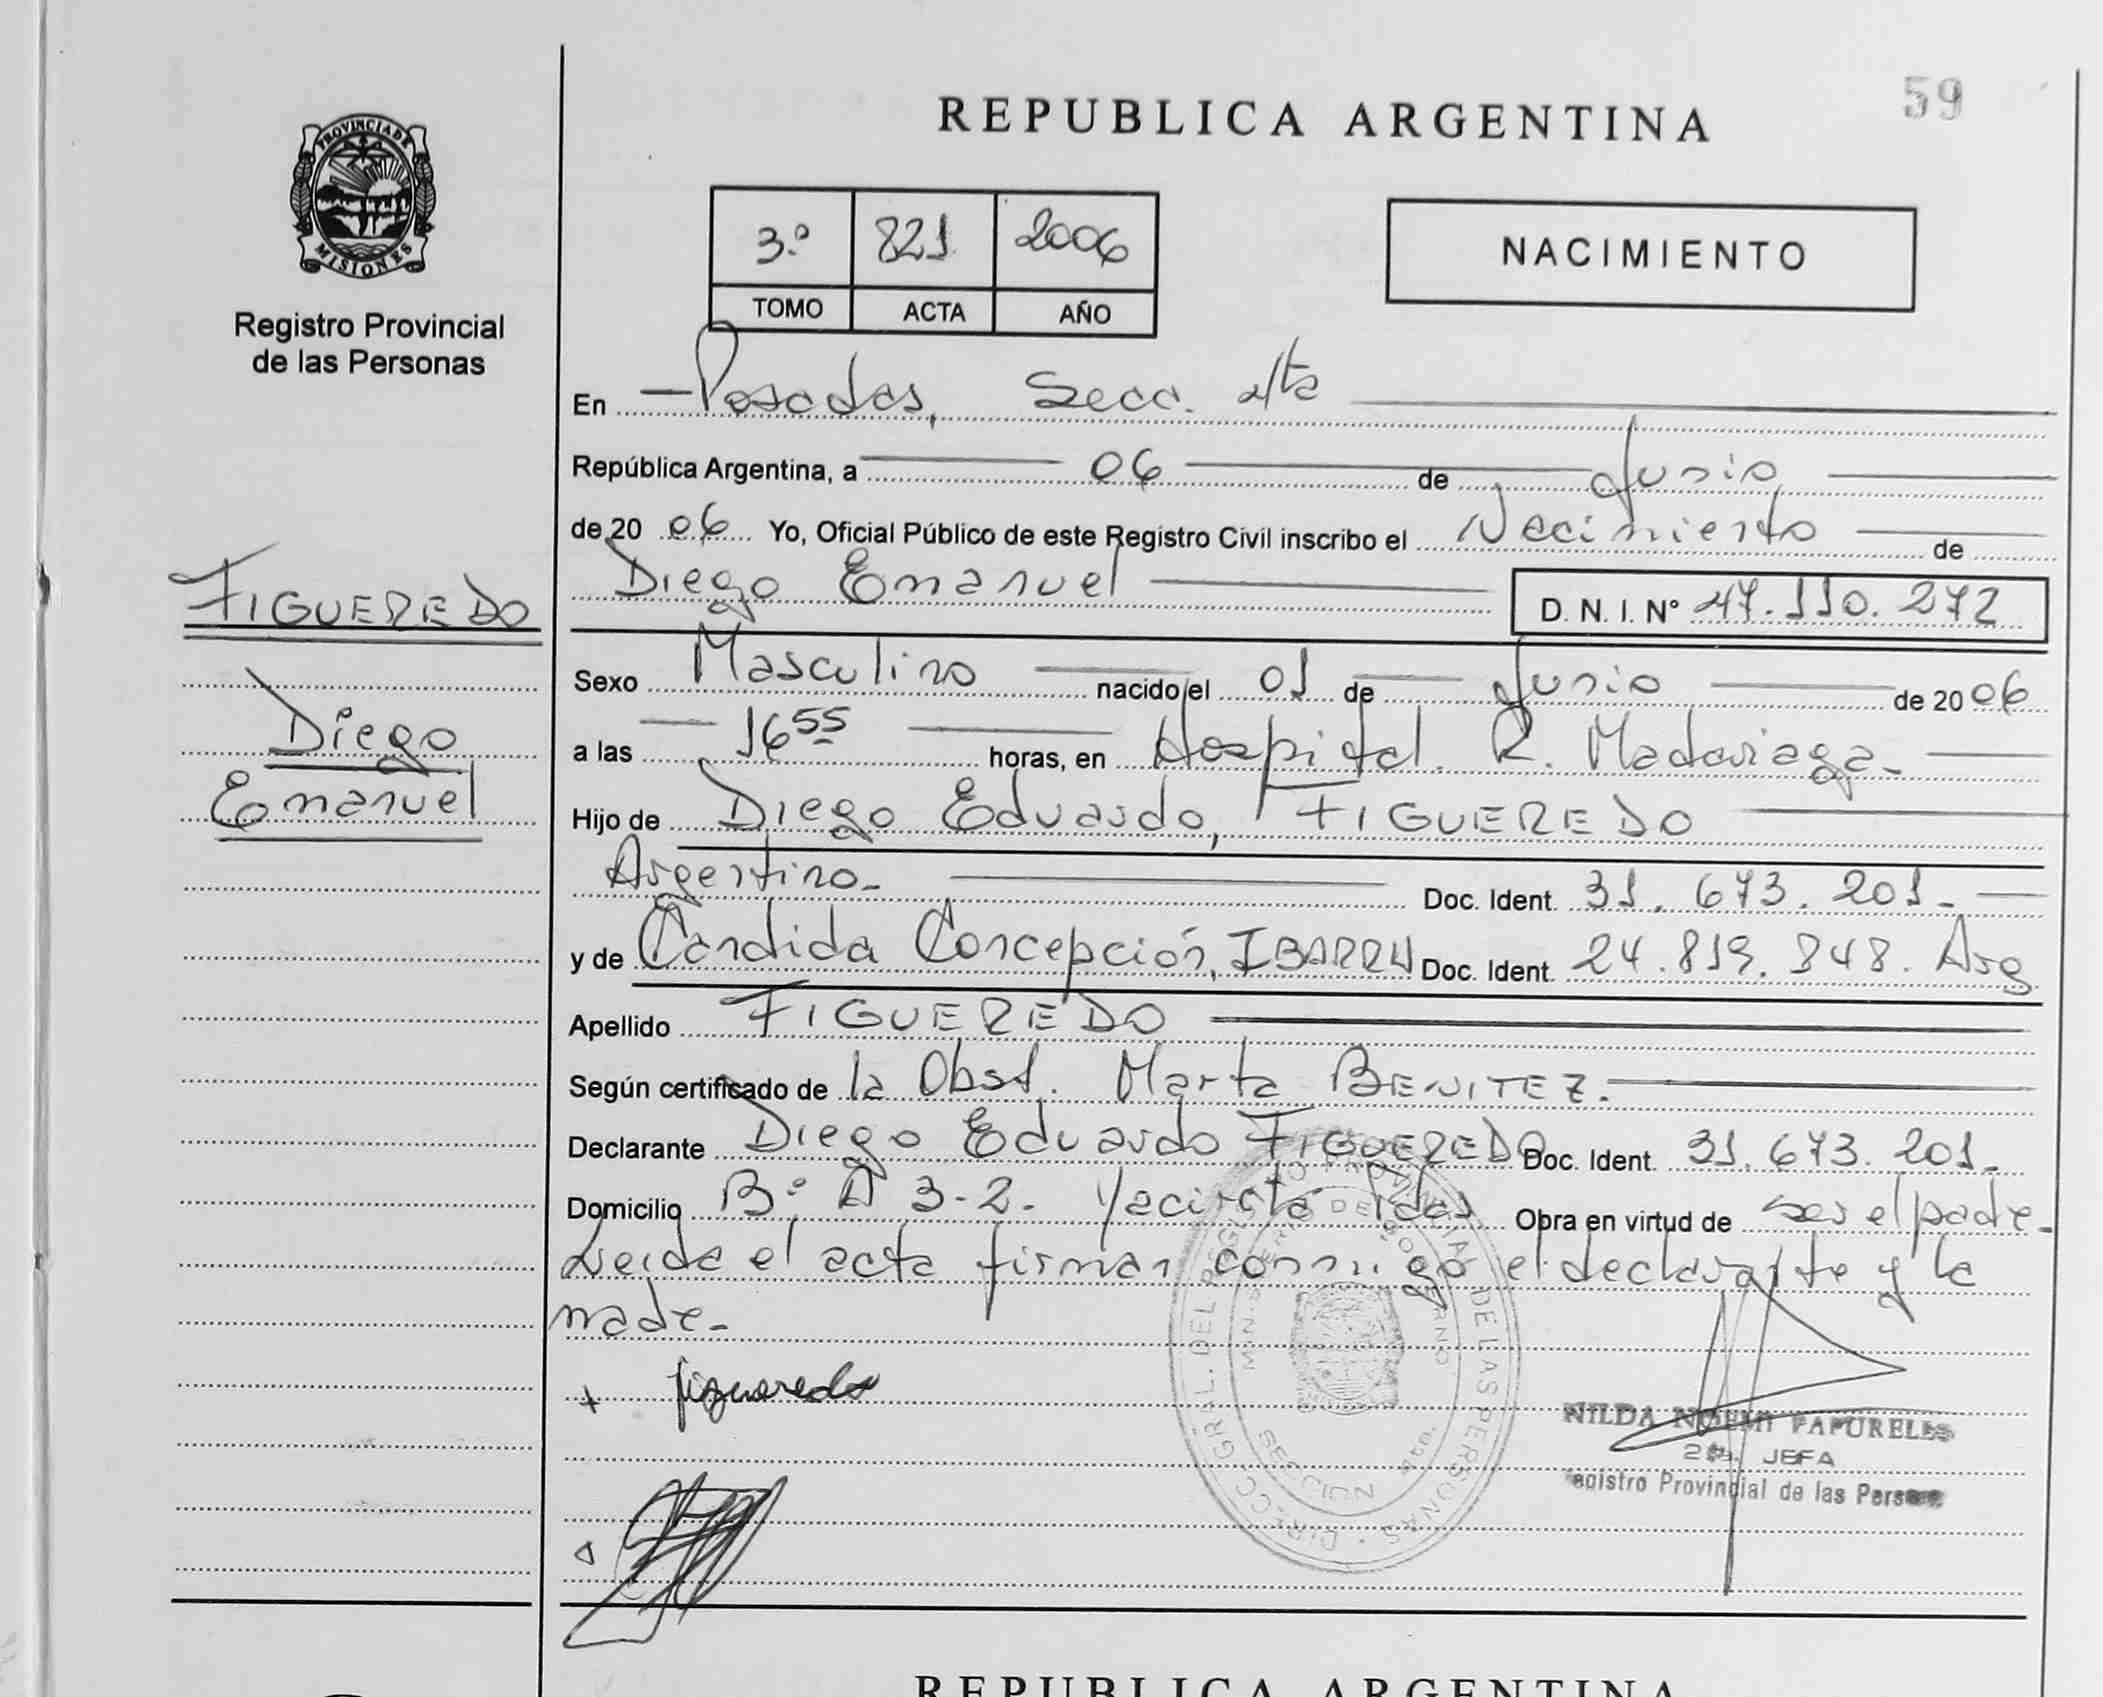 59
REPUBLICA ARGENTINA
PROVINCIA DE
MISIONES
Registro Provincial
de las Personas
3º 821 2006
TOMO ACTA AÑO
NACIMIENTO
En Posadas, Secc. 4ta
República Argentina, a 06 de Junio
de 20 06 Yo, Oficial Público de este Registro Civil inscribo el Nacimiento de
Diego Emanuel D. N. I. Nº 47.110.272
FIGUEREDO
Diego
Emanuel
Sexo Masculino nacido el 01 de Junio de 20 06
a las 16 55 horas, en Hospital. R. Madariaga-
Hijo de Diego Eduardo, FIGUEREDO
Argentino- Doc. Ident. 31.673.201-
y de Candida Concepción, IBARRA Doc. Ident. 24.819.848. Arg
Apellido FIGUEREDO
Según certificado de la Obst. Marta BENITEZ.
Declarante Diego Eduardo FIGUEREDO Doc. Ident. 31.673.201-
Domicilio Bº A 3-2. Yacireta Pdas Obra en virtud de ser el padre-
Leida el acta firman conmigo el declarante y la
madre-
figueredo
DIRECC. GRAL. DEL REGISTRO PROVINCIAL DE LAS PERSONAS
MINISTERIO DE GOBIERNO
SECCION
NILDA NOEMI
JEFA
Registro Provincial de las Personas
REPUBLICA ARGENTINA